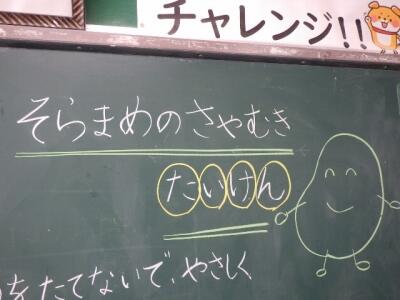 チャレンジ!!
そらまめのさやむき
たいけん
をたてないで、やさしく